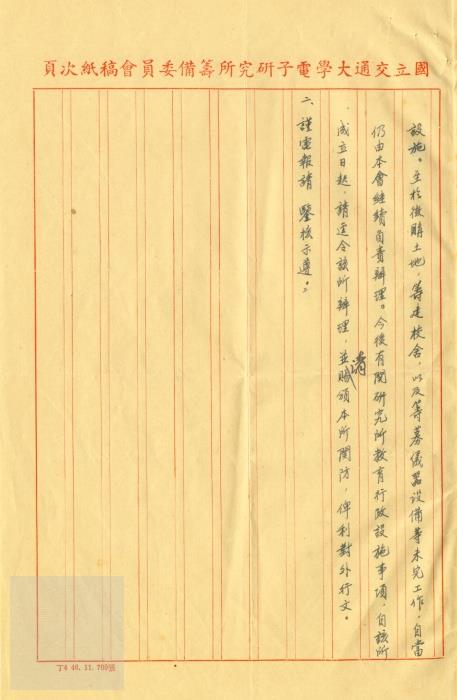 國立交通大學電子研究所籌備委員會稿紙次頁
設施。至於徵購土地,籌建校舍,以及籌募儀器設備等未完工作,自當
仍由本會繼續負責辦理。今後有關研究所教育行政設施事項,自該所
成立日起,請逕令該所辦理,並請賜頒本所關防,俾利對外行文。
二、謹電報請 鑒核示遵。
丁4 46. 11. 700張